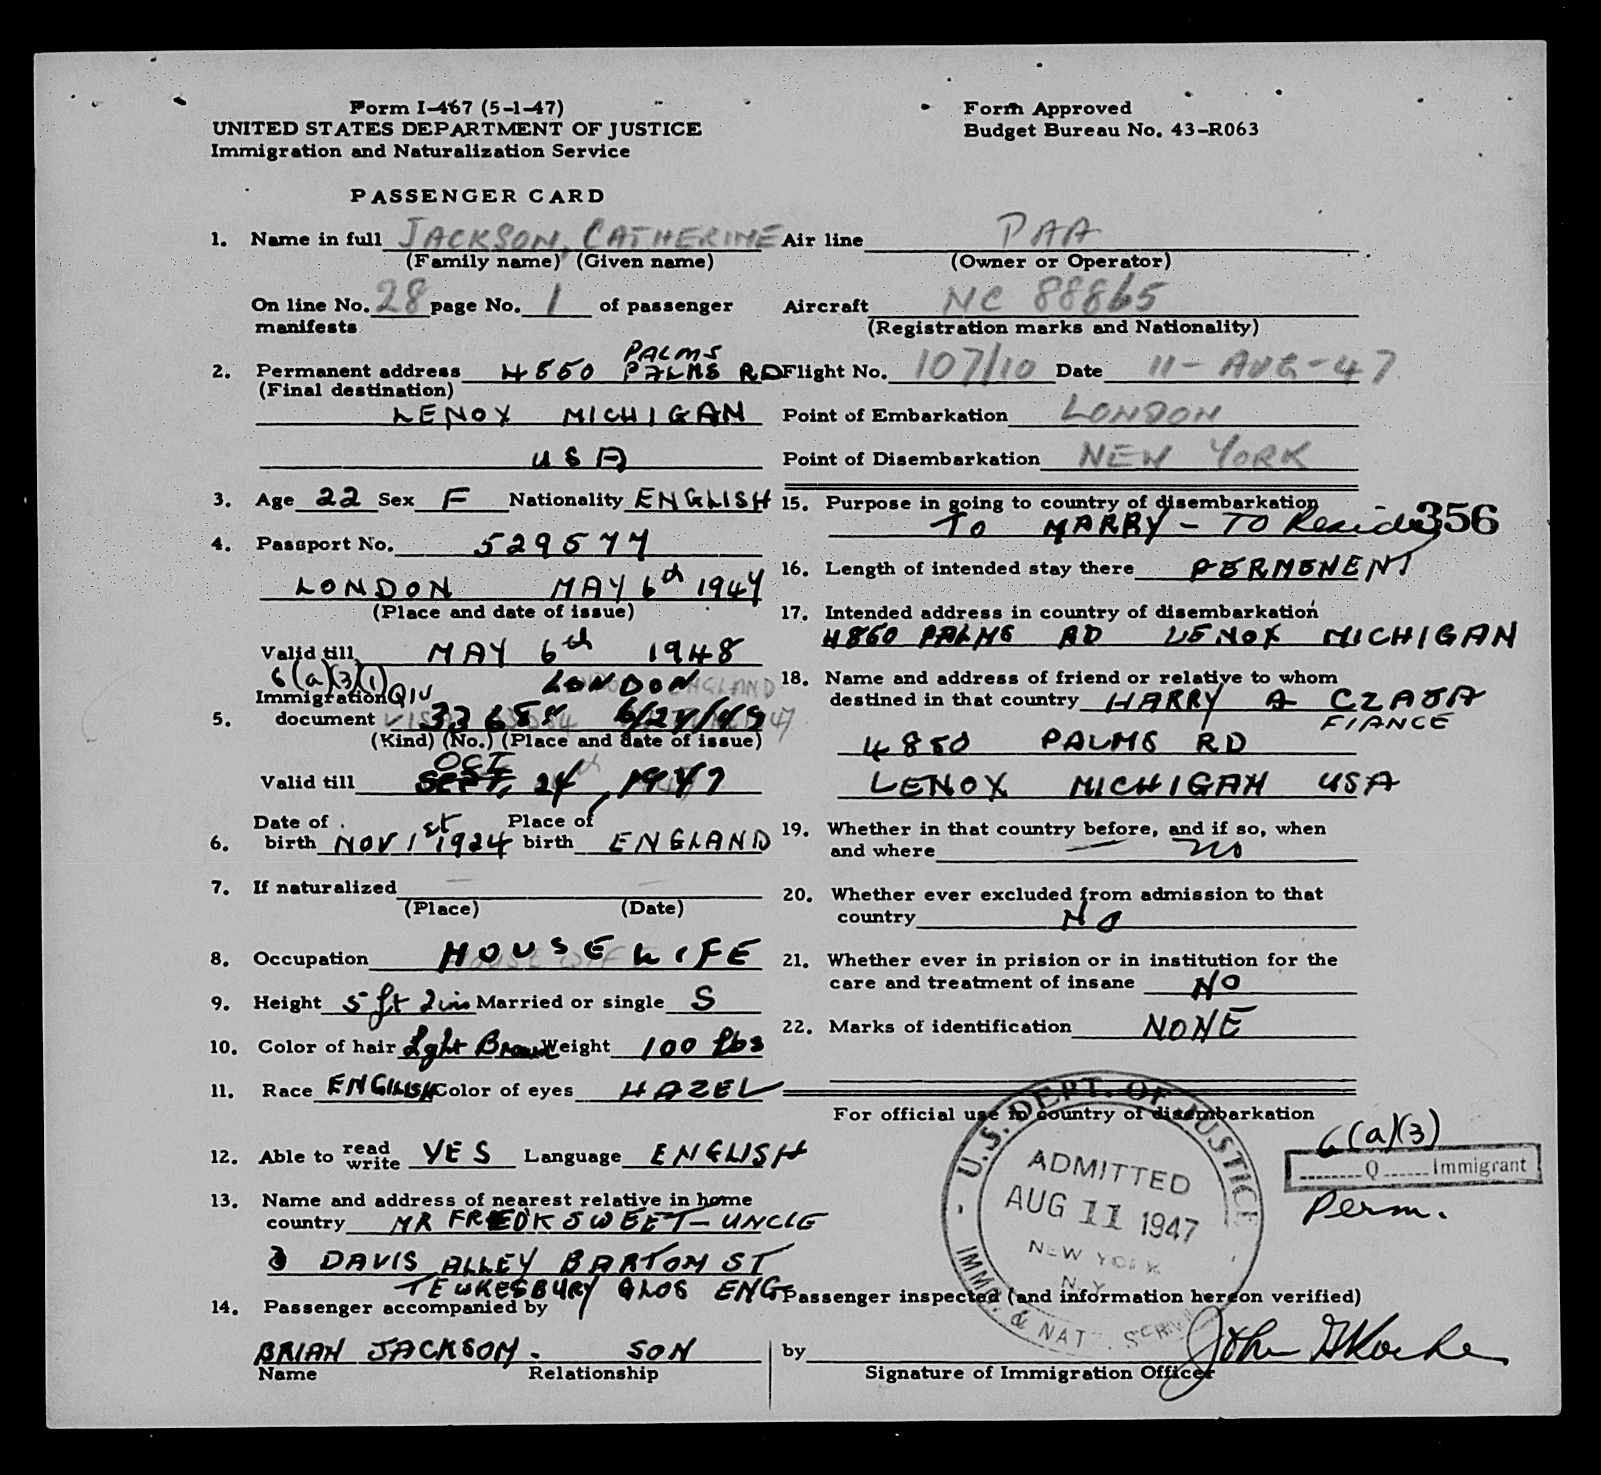 Form I-467 (5-1-47)
UNITED STATES DEPARTMENT OF JUSTICE
Immigration and Naturalization Service
Form Approved
Budget Bureau No. 43-R063
PASSENGER CARD
1. Name in full JACKSON, CATHERINE
(Family name) (Given name)
On line No. 28 page No. 1 of passenger
manifests
PALMS
2. Permanent address 4860 PALMS RD
(Final destination)
LENOX MICHIGAN
USA
3. Age 22 Sex F Nationality ENGLISH
4. Passport No. 529577
LONDON MAY 6th 1947
(Place and date of issue)
Valid till MAY 6th 1948
6(a)(3)(1)
Immigration QIV LONDON ENGLAND
5. document
(Kind) (No.) (Place and date of issue)
OCT
Valid till SEPT. 24th, 1947
6. Date of birth NOV 1st 1924 Place of birth ENGLAND
7. If naturalized
(Place) (Date)
8. Occupation HOUSEWIFE
9. Height 5 ft 2 ins Married or single S
10. Color of hair Lght Brown Weight 100 lbs
11. Race ENGLISH Color of eyes HAZEL
12. Able to read write YES Language ENGLISH
13. Name and address of nearest relative in home
country MR FREDK SWEET - UNCLE
3 DAVIS ALLEY BARTON ST
TEWKESBURY GLOS ENG
14. Passenger accompanied by
BRIAN JACKSON. SON
Name Relationship
Air line PAA
(Owner or Operator)
Aircraft NC 88865
(Registration marks and Nationality)
Flight No. 107/10 Date 11-AUG-47
Point of Embarkation LONDON
Point of Disembarkation NEW YORK
15. Purpose in going to country of disembarkation
TO MARRY - TO Reside 356
16. Length of intended stay there PERMENENT
17. Intended address in country of disembarkation
4860 PALMS RD LENOX MICHIGAN
18. Name and address of friend or relative to whom
destined in that country HARRY A CZAJA
FIANCE
4850 PALMS RD
LENOX MICHIGAN USA
19. Whether in that country before, and if so, when
and where — no
20. Whether ever excluded from admission to that
country NO
21. Whether ever in prision or in institution for the
care and treatment of insane NO
22. Marks of identification NONE
For official use in country of disembarkation
U.S. DEPT. OF JUSTICE
ADMITTED
AUG 11 1947
NEW YORK
N.Y.
IMMG. & NATZ. SERV.
6(a)(3)
Q Immigrant
Perm.
Passenger inspected (and information hereon verified)
by John
Signature of Immigration Officer